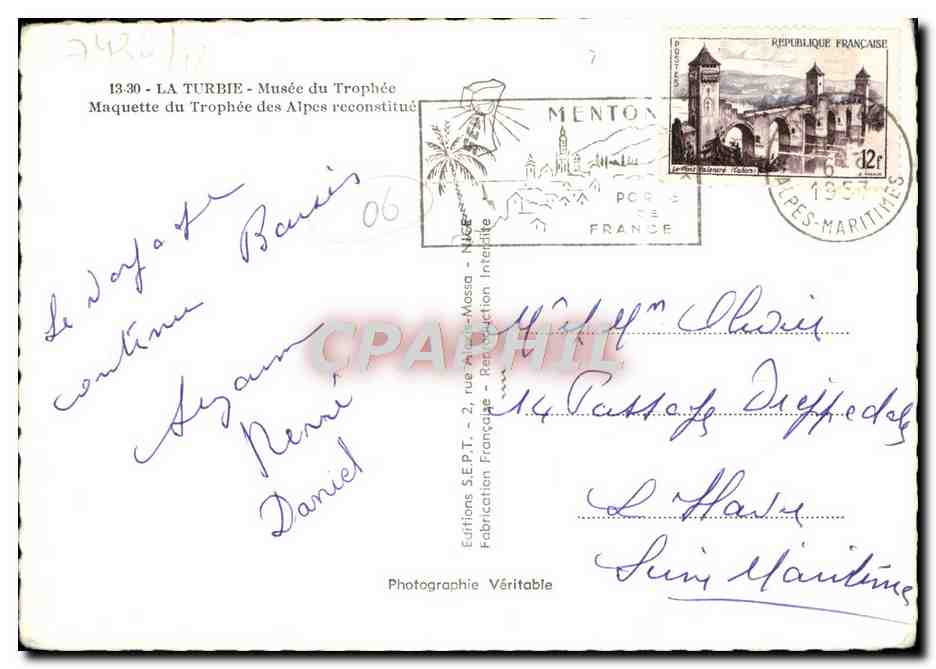 7430/
13-30 - LA TURBIE - Musée du Trophée
Maquette du Trophée des Alpes reconstitué
MENTON
PORTE
DE
FRANCE
POSTES
REPUBLIQUE FRANÇAISE
12F
Le Pont Valentré (Cahors)
6
1957
ALPES-MARITIMES
06
Le voyage
continue Baisers
Suzanne
René
Daniel
CPAPHIL
Editions S.E.P.T. - 2, rue Alexis-Mossa - NICE
Fabrication Française - Reproduction Interdite
Mr et Mme Olivier
14 Passage Dieppedale
Le Havre
Seine Maritime
Photographie Véritable